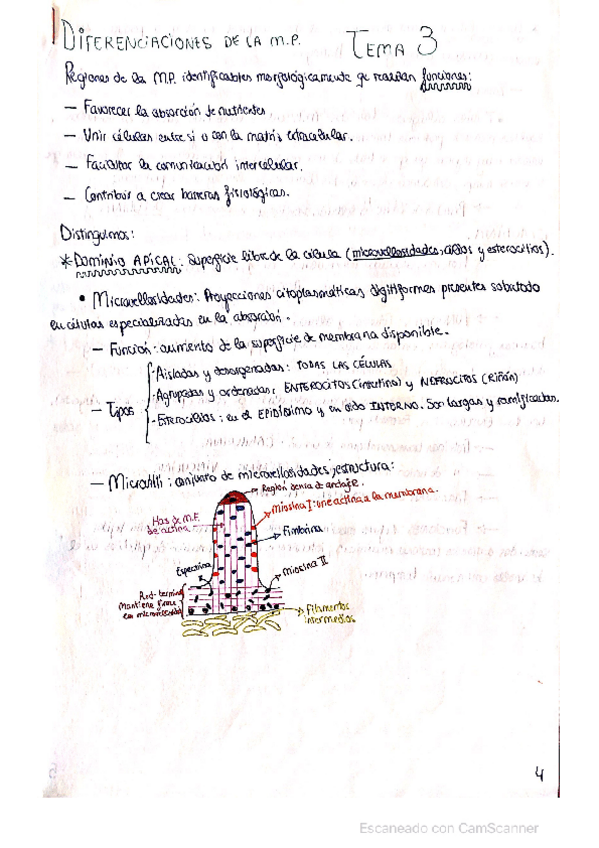 DIFERENCIACIONES DE LA M.P. TEMA 3
Regiones de la M.P. identificables morfológicamente qe realizan funciones:
— Favorecer la absorción de nutrientes.
— Unir células entre si o con la matriz extracelular.
— Facilitar la comunicación intercelular.
— Contribuir a crear barreras fisiológicas.
Distinguimos:
* DOMINIO APICAL: Superficie libre de la célula (microvellosidades, cilios y estereocilios).
• Microvellosidades: Proyecciones citoplasmáticas digitiformes presentes sobretodo
en células especializadas en la absorción.
— Función: aumento de la superficie de membrana disponible.
— Tipos
· Aisladas y desorganadas: TODAS LAS CÉLULAS
· Agrupadas y ordenadas: ENTEROCITOS (intestino) y NEFROCITOS (Riñón)
· Estereocilios: en el EPIDÍDIMO y en oído INTERNO. Son largas y ramificadas.
— Microvilli: conjunto de microvellosidades, estructura:
Región densa de anclaje.
Miosina I: une actina a la membrana.
Has de M.F.
de actina
Fimbrina
Espectrina
Miosina II
Red-terminal
Mantiene firmes
Filamentos
intermedios
4
Escaneado con CamScanner